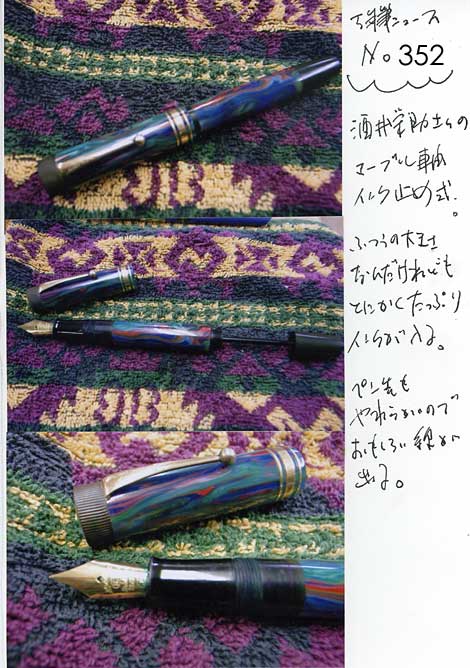 万年筆ニュース
No 352
酒井栄助さんの
マーブル軸
インク止め式。
ふつうの太さ
なんだけれども
とにかくたっぷり
インクが入る。
ペン先も
やわらかいので
おもしろい線が
出る。